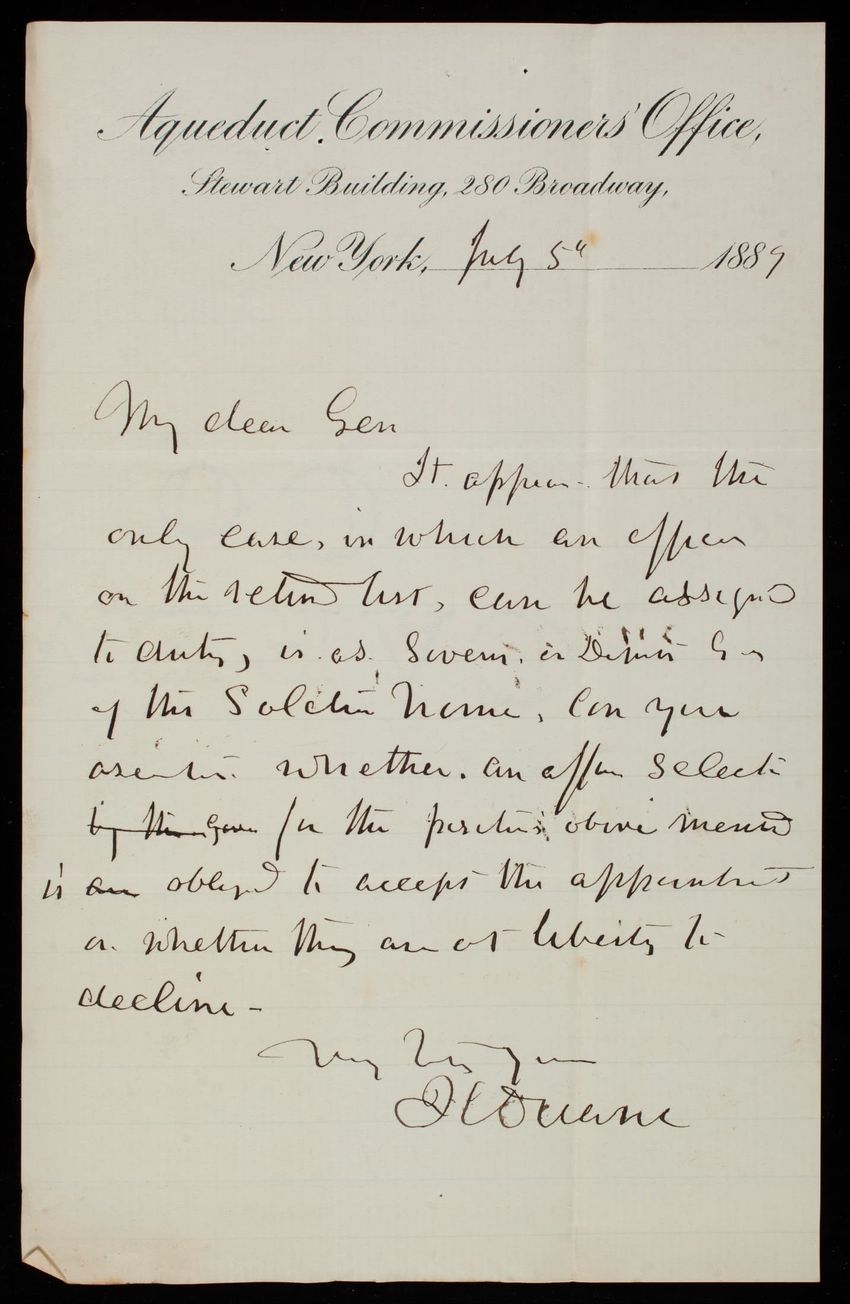 Aqueduct Commissioners' Office,
Stewart Building, 280 Broadway,
New York, July 5th 1889
My dear Gen
It appears that the
only case, in which an officer
on the retired list, can be assigned
to duty, is as Govern. or Deputy Gov
of the Soldiers Home, Can you
ascertain whether an officer selected
by the Gover for the position above mentioned
is are obliged to accept the appointment
or whether they are at liberty to
decline -
Very Truly Yours
J C Duane